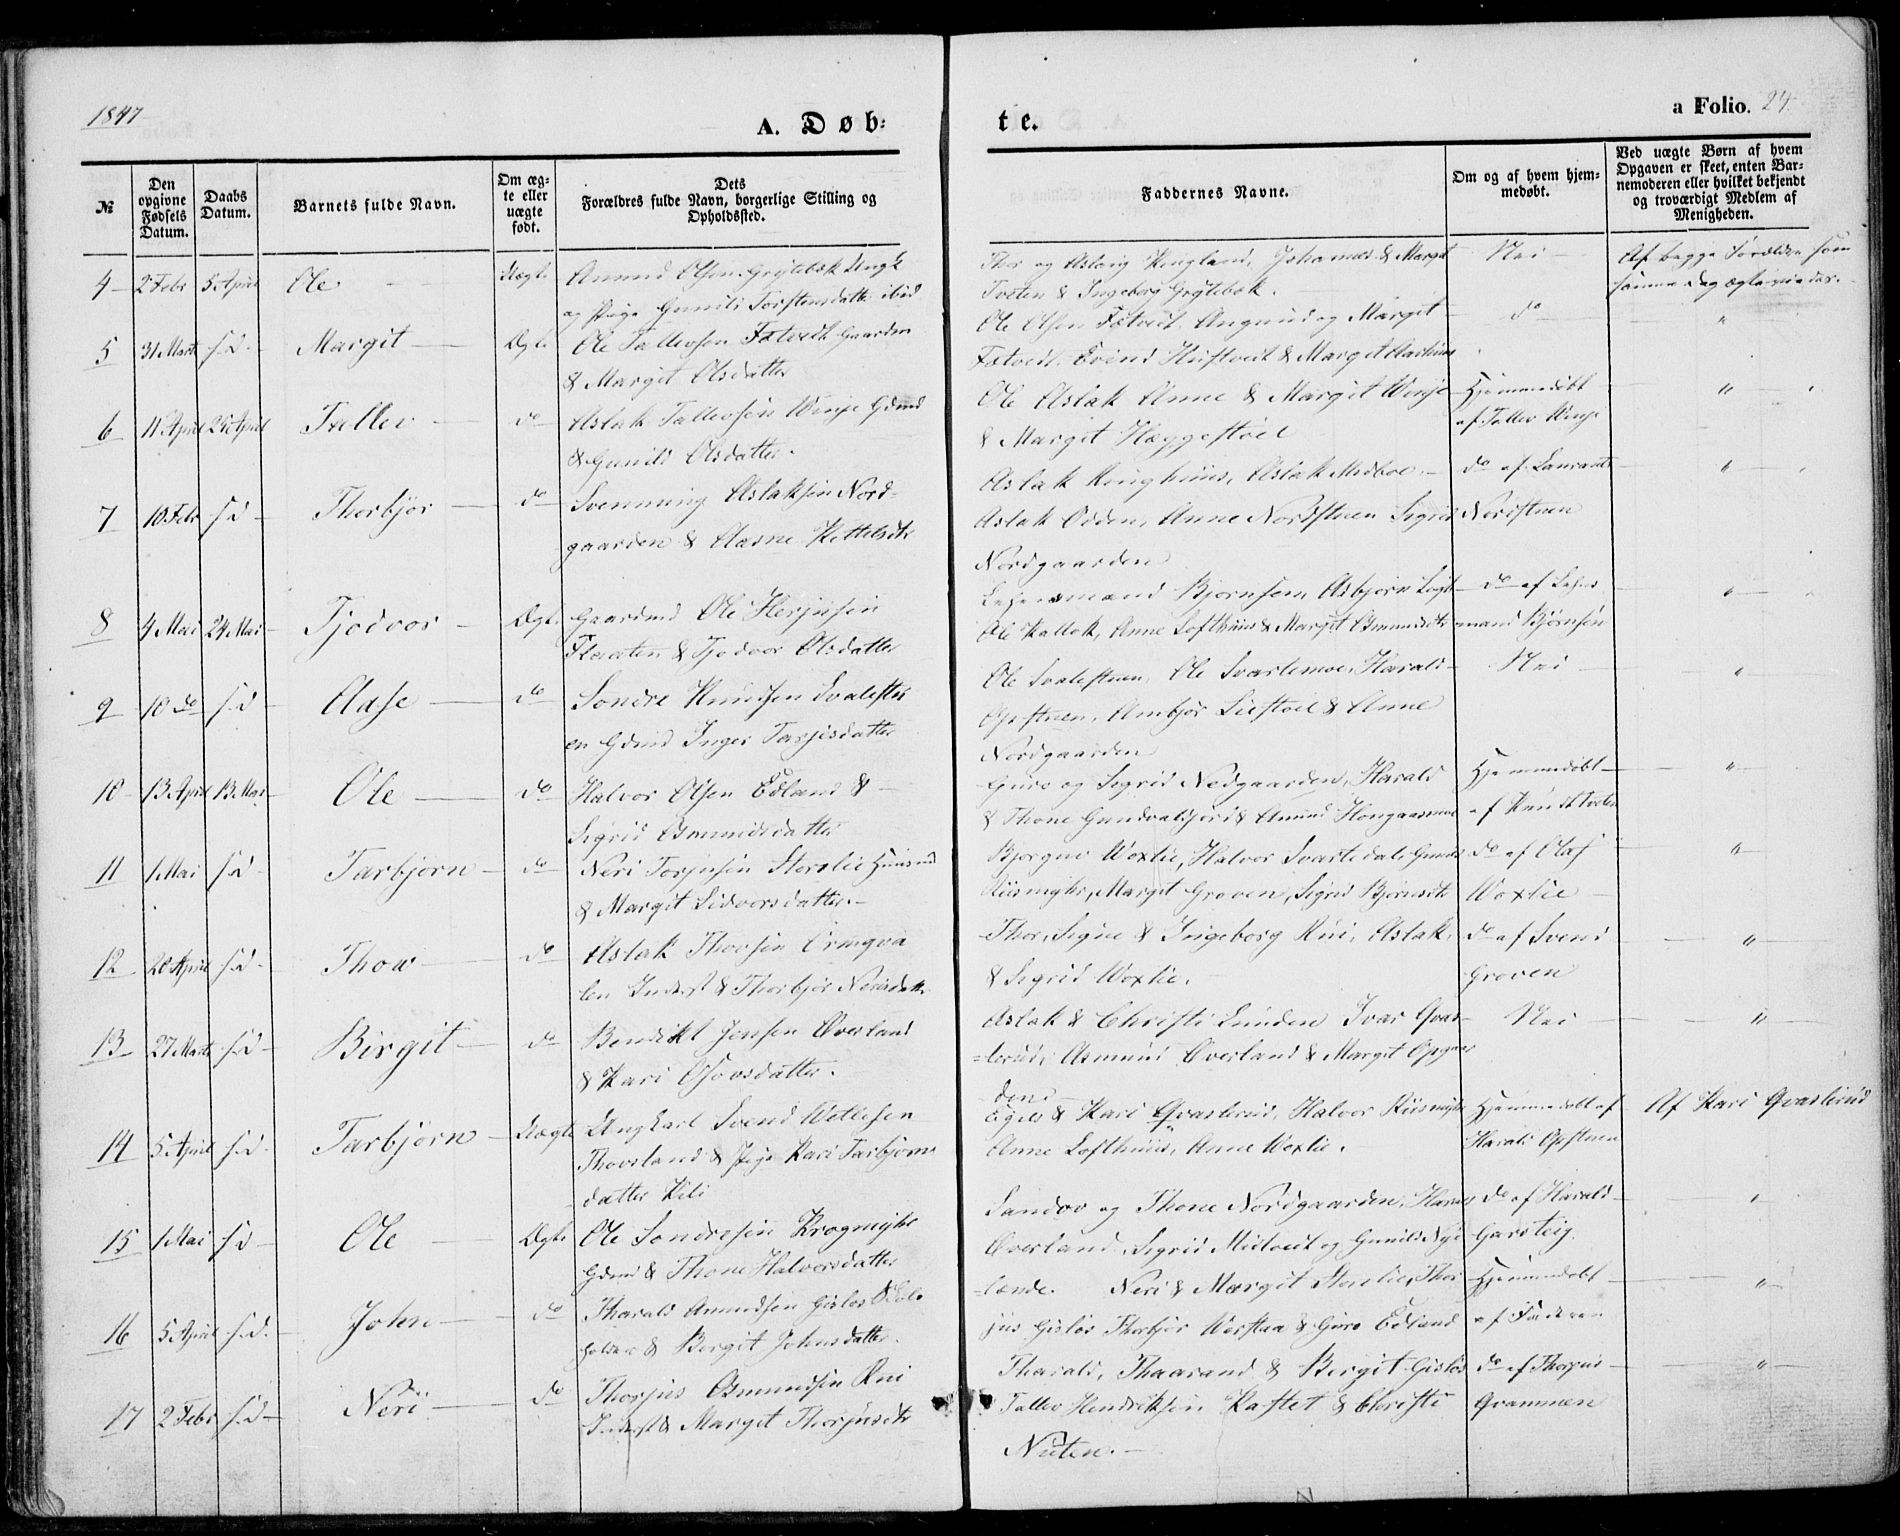 1847
A. Døb:
te.
a Folio. 24.
№
Den opgivne Fødsels Datum.
Daabs Datum.
Barnets fulde Navn.
Om æg-te eller uægte født.
Dets Forældres fulde Navn, borgerlige Stilling og Opholdssted.
Faddernes Navne.
Om og af hvem hjem-medøbt.
Ved uægte Børn af hvem Opgaven er skeet, enten Bar-nemoderen eller hvilket bekjendt og troværdigt Medlem af Menigheden.
4 2 Febr 5 April Ole Uægte Amund Olsen Grytebæk Ungk
og Pige Gunild Torstensdatter ibid
Thor og Aslaug Kingland, Johannes & Margit
Tveten & Ingeborg Grytebæk.
Nei
Af begge Forældre som
samme Dag ægteviedes.
5 31 Marts s.d. Margit Ægte Ole Tallevsen Fætvedt Gaardm
& Margit Olsdatter
Ole Olsen Fætveit, Angunn og Margit
Fætvedt, Eivind Hustveit & Margit Aarhuus
do "
6 11 April 25 April Tallev do Aslak Tallevsen Winje Gdmd
& Gunild Olsdatter.
Ole Aslak Anne & Margit Winje
& Margit Hæggestoel
Hjemmedøbt
af Tallev Winje
"
7 10 Febr s.d Thorbjør do Svenning Aslaksen Nord-
gaarden & Aasne Kittelsdtr
Aslak Kinghuus, Aslak Midboe
Aslak Odden, Anne Nordstuen Sigrid
Nordgaarden
do af Laurants
Nordstuen
"
8 4 Mai 24 Mai Tjodvor Ægt. Gaardmd Ole Herjusen
Flaaten & Tjodvor Olsdatter
Lehnsmand Bjørnsen, Asbjørn Logt
Ole Kallok, Anne Lofthuus & Margit Osmundsdtr
do af Lehns
mand Bjørnsen
"
9 10 do s.d Aase do Sondre Knudsen Svalestu
en Gdmd Inger Tarjeisdatter
Ole Svalestuen, Ole Svartemoe, Harald
Opstuen, Ambjør Liestoel & Anne
Nordgaarden
Nei "
10 13 April 13 Mai Ole do Halvor Olsen Edland &
Sigrid Osmundsdatter
Guro og Sigrid Nedgaarden, Harald
& Thone Gundvaldsjord & Amund Hongaasmoe
Hjemmedøbt
af Knudt Tveten
"
11 1 Mai s.d Tarbjørn do Neri Torjusen Storelie Huusmd
& Margit Sidvorsdatter.
Bjorgue Woxlie, Halvor Svartedal, Gunde
Kiismyhr, Margit Groven, Sigrid Bjørnsdtr
do af Olaf
Woxlie
"
12 20 April s.d. Thow do Aslak Thovsen Ormqva
len Inderst & Thorbjør Nerisdatter
Thor, Signe & Ingeborg Rui, Aslak,
& Sigrid Woxlie.
do af Svend
Groven
"
13 27 Marts s.d Birgit do Bendikt Jensen Øverland
& Kari Olovsdatter.
Aslak & Christi Lunden Ivar Qvas
=lerud, Asmund Øverland & Margit Opgaar
den
Nei "
14 5 April s.d. Tarbjørn Uægte Ungkarl Svend Wetlesen
Thovsland & Pige Kari Tarbjørns
datter Kili
Egild & Kari Qvaslerud, Halvor Kiismyhr
Anne Lofthuus, Anne Woxlie.
Hjemmedøbt af
Harald Opstuen
Af Kari Qvaslerud
15 1 Mai s.d Ole Ægte Ole Sondresen Krogmyhr
Gdmd & Thone Halvorsdatter
Sandov og Thone Nordgaarden, Harald
Øverland, Sigrid Midtveit og Gunild Nye
-lænde.
do af Harald
Garsteig
"
16 5 April s.d. John do Tharald Amundsen Gisløs Skole
holder & Bergit Johnsdatter.
Neri & Margit Storelie, Thor
jus Gisløs Thorbjør Werstaa & Guro Edland
Hjemmedøbt
af Faderen
"
17 2 Febr s.d Neri do Thorjus Osmundsen Rui
Inderst & Margit Thorjusdtr
Tharald, Thaarand & Bergit Gisløs
Tallev Hendriksen Kastet & Christi
Nuten.
do af Thorjus
Qvammen
"